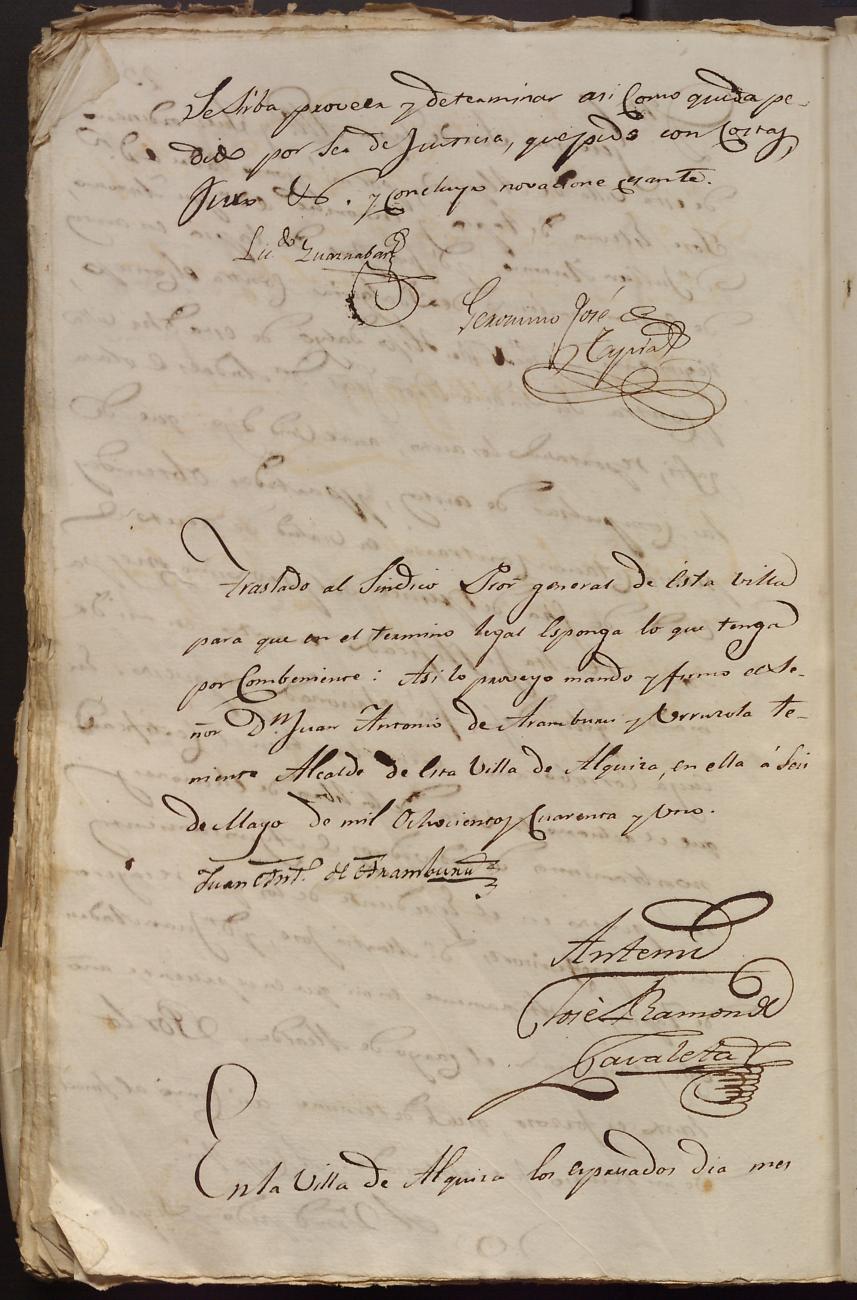 se Sirba proveer y determinar asi como queda pe-
dido por ser de Justicia, que pido con Costas,
Juro &ª. y Concluyo novacione cesante.
Lic.do
Geronimo José de
Tapia
Traslado al Sindico Pror general de esta villa
para que en el termino legal Esponga lo que tenga
por Combeniente: Asi lo proveyo mando y firmo el Se-
ñor Dn Juan Antonio de Aramburu y Urruzola te-
niente Alcalde de esta Villa de Alquiza, en ella á Seis
de Mayo de mil Ochocientos Cuarenta y Uno.
Juan Antº. de Aramburu
Antemi
José Ramon de
Zavaleta
En la Villa de Alquiza los espresados dia mes